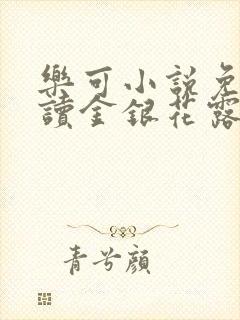 樂可小說免
讀金銀花露
青兮顏